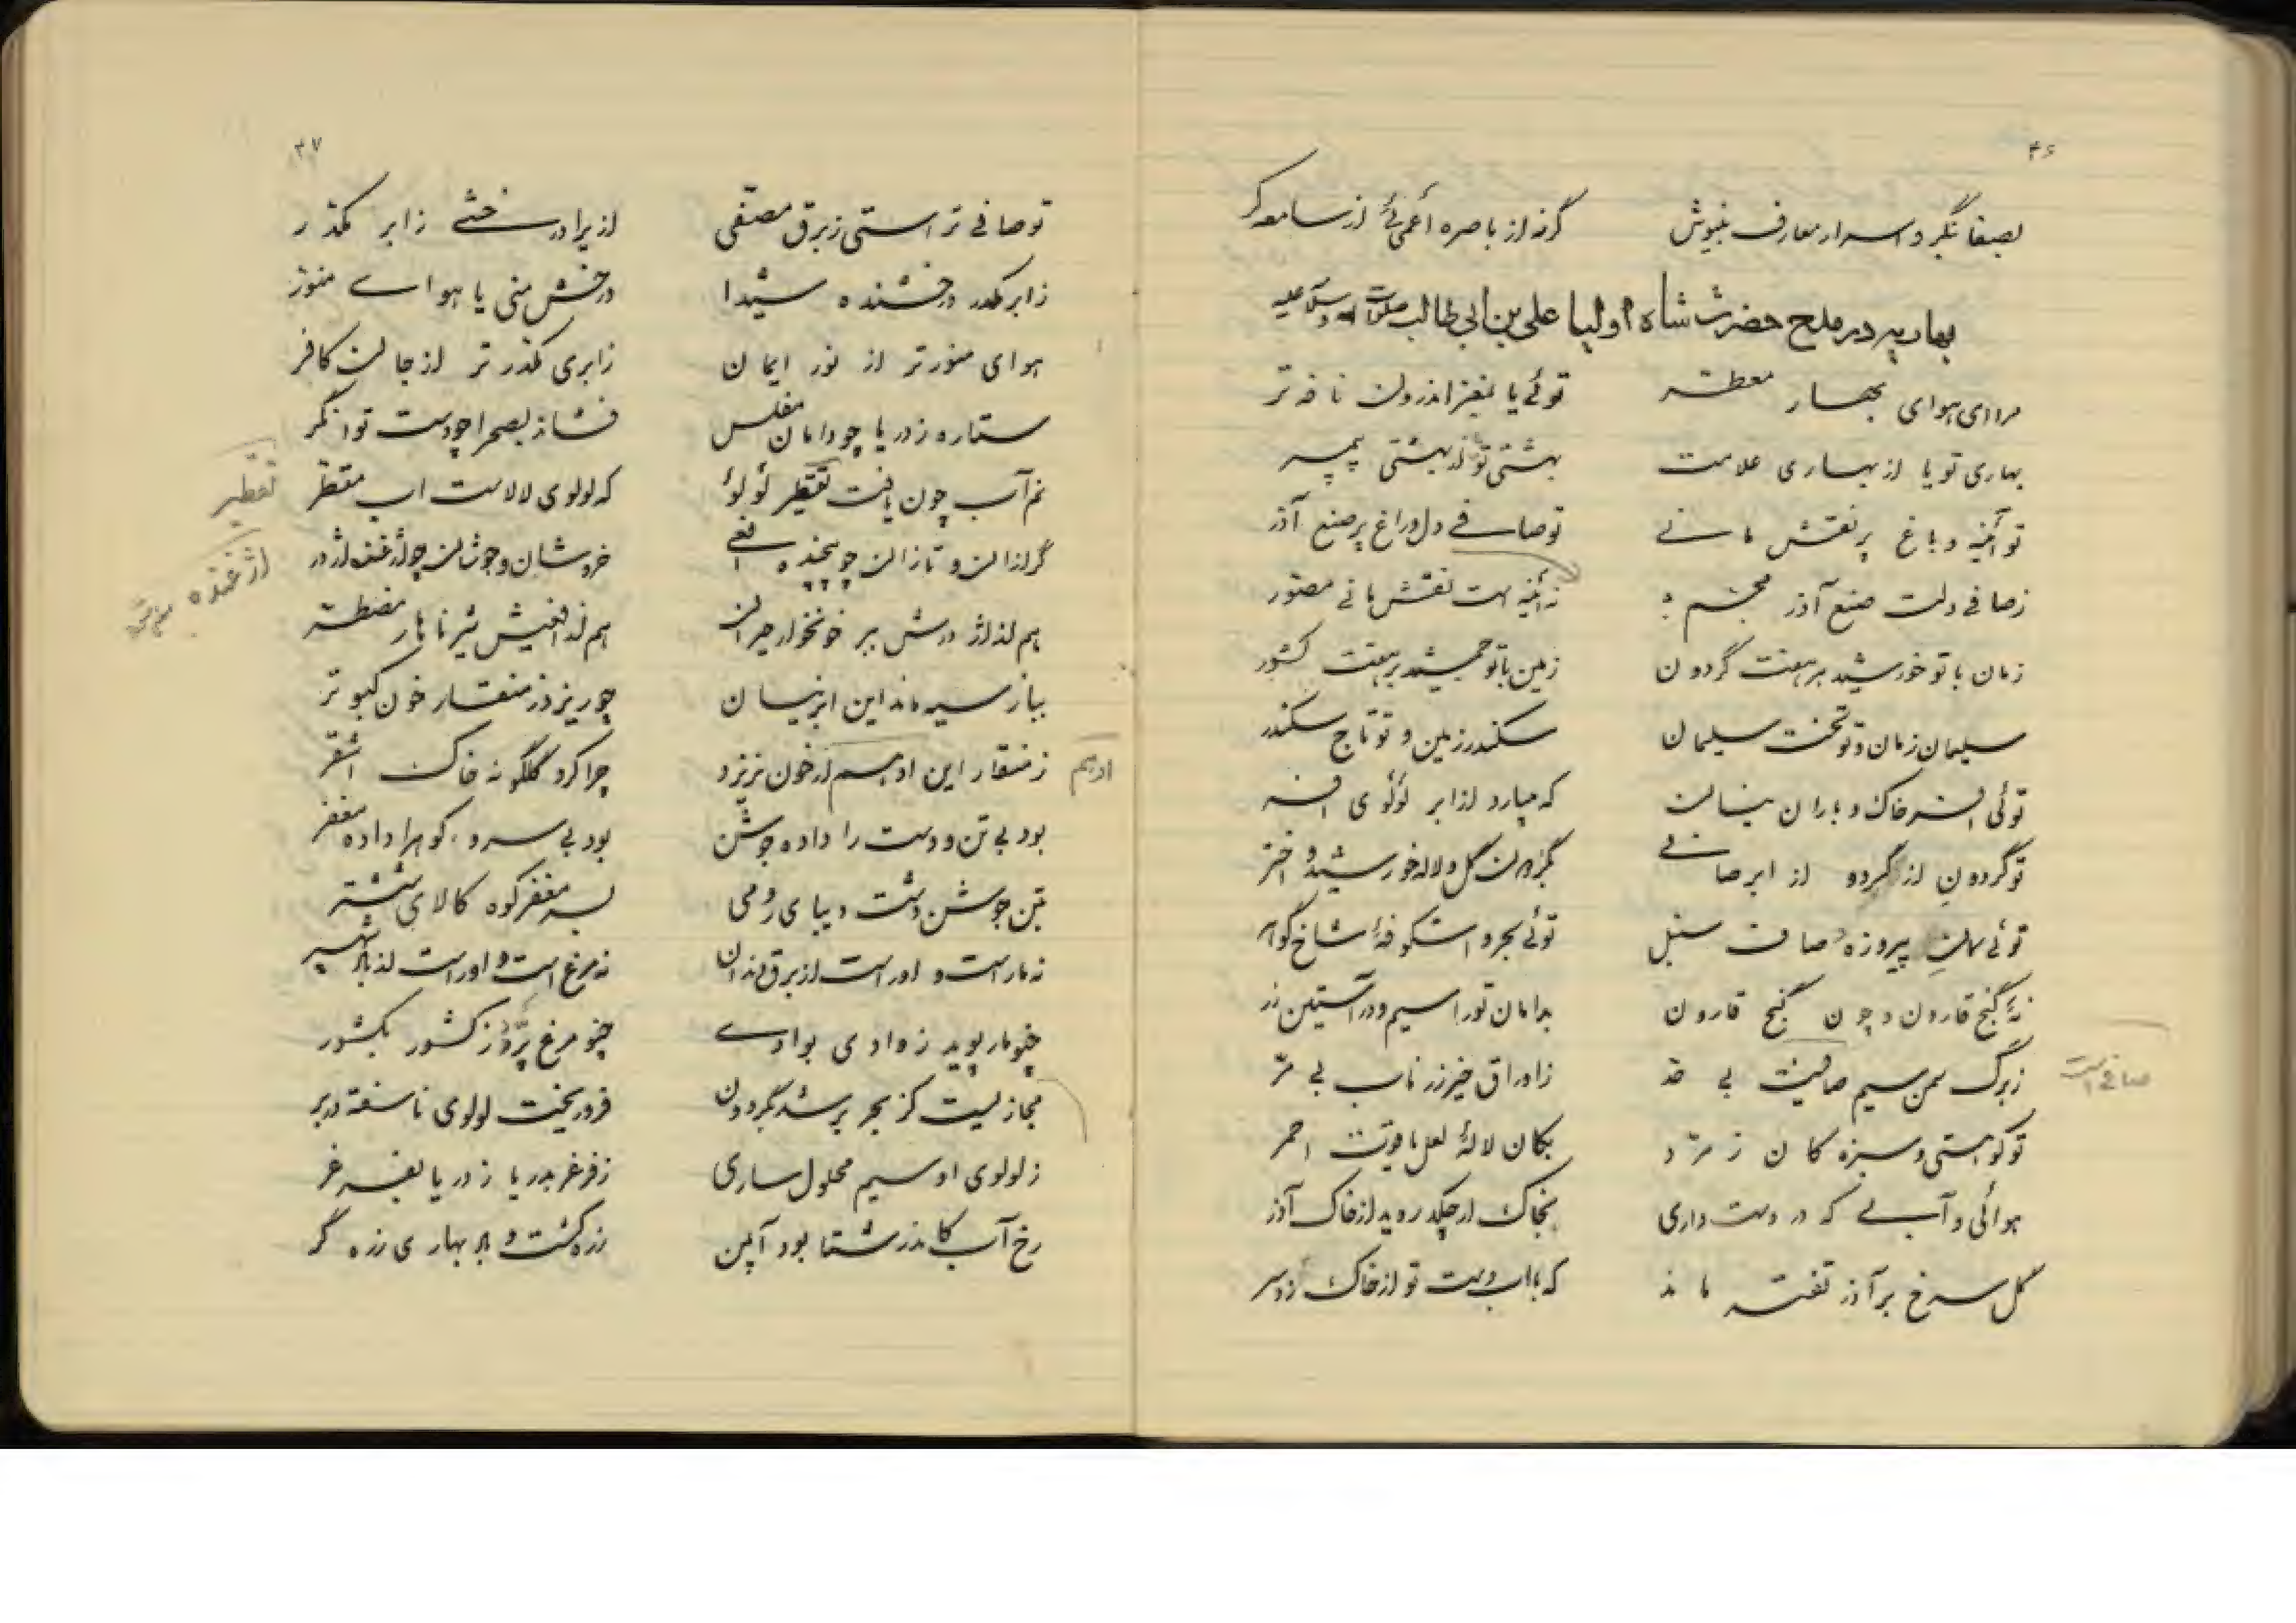 ۴۶
بصفا نگر و اسرار معارف بنیوش گرنه از باصره اعمی‌ئی از سامعه کر
بهاریه در مدح حضرت شاه اولیا علی بن ابی طالب صلوات الله و سلامه علیه
مرا ای هوای بهار معطر توئی یا بمغز اندرون نافه تر
بهاری تو یا از بهاری علامت بهشتی تو از بهشتی پیمبر
تو آئینه و باغ پر نقش مانی تو صافی دل و راغ پر صنع آذر
ز صافی دلت صنع آذر مجسم ز آئینه ات نقش مانی مصور
زمان با تو خورشید بر هفت گردون زمین با تو جمشید بر هفت کشور
سلیمان زمان و تو تخت سلیمان سکندر زمین و تو تاج سکندر
توئی افسر خاک و باران نیسان که میبارد از ابر لؤلؤی افسر
تو گردون از گردو از ابر صافی بگردون گل و لاله خورشید و اختر
توئی کان پیروزه صافت سنبل توئی بحر و اشکوفهٔ شاخ گوهر
نهٔ گنج قارون و چون گنج قارون بدامان تو را سیم و در آستین زر
ز برگ سمن سیم صافیت بی حد ز اوراق خیری زر ناب بی مر
صافی است
تو کوهستی و سبزه کان زمرد بکان لالهٔ لعل یاقوت احمر
هوائی و آبی که در دست داری بخاک ار چکد روید از خاک آذر
گل سرخ بر آذر تفته ماند که با آب دست تو از خاک زد سر
۴۷
تو صافی تر استی ز برق مصفی ازیرا درخشی ز ابر مکدر
ز ابر مکدر درخشنده شیدا درخش منی یا هوای منور
هوای منورتر از نور ایمان ز ابری مکدرتر از جان کافر
ستاره ز دریا چو دامان مفلس فشاند بصحرا چو دست توانگر
نم آب چون یافت تقطیر لؤلؤ که لولوی لالاست آب مقطر
تقطیر
گرازان و تازان چو پیچنده افعی خروشان و جوشان چو ارغنده اژدر
ارغنده
هم از اژدرش ببر خونخوار حیران هم از افعیش شیر ناهار مضطر
بباز سیه ماند این ابر نیسان چو ریزد ز منقار خون کبوتر
ز منقار این ادهم ار خون نریزد چرا کرد گلگونه خاک اشقر
ادهم
بود بی تن و دشت را داده جوشن بود بی سر و کوه را داده مغفر
بتن جوشن دشت دیبای رومی بسر مغفر کوه کالای ششتر
نه مار است و او راست از برق دندان نه مرغ است و او راست از باد شهپر
چنو مار پوید ز وادی بوادی چنو مرغ پرد ز کشور بکشور
مجازیست کز بحر بر شد بگردون فرو ریخت لولوی ناسفته در بر
ز لولوی او سیم محلول ساری ز فرغر بدریا ز دریا بفرغر
رخ آب کاندر شتا بود آهن زره گشت و باد بهاری زره گر